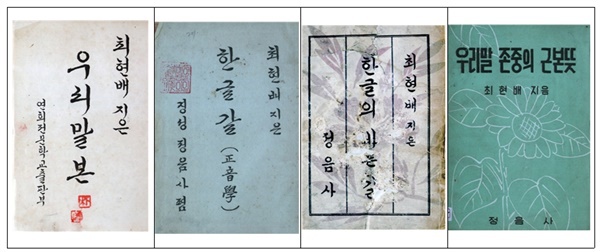 최현배 지은
우리말본
연희전문학교출판부
최현배 지은
한글갈 (正音學)
경성 정음사
최현배 지은
한글의 바른길
정음사
우리말 존중의 근본뜻
최현배 지음
정음사